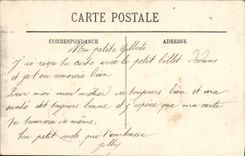 CARTE POSTALE
CORRESPONDANCE
ADRESSE
Ma petite
J'ai reçu ta carte avec le petit billet dedans
et je t'en remercie bien
Pour moi mon métier va toujours bien et ma
santé est toujours bonne et j'espère que ma carte
te trouvera de même.
Ton petit oncle que t'embrasse
Jules